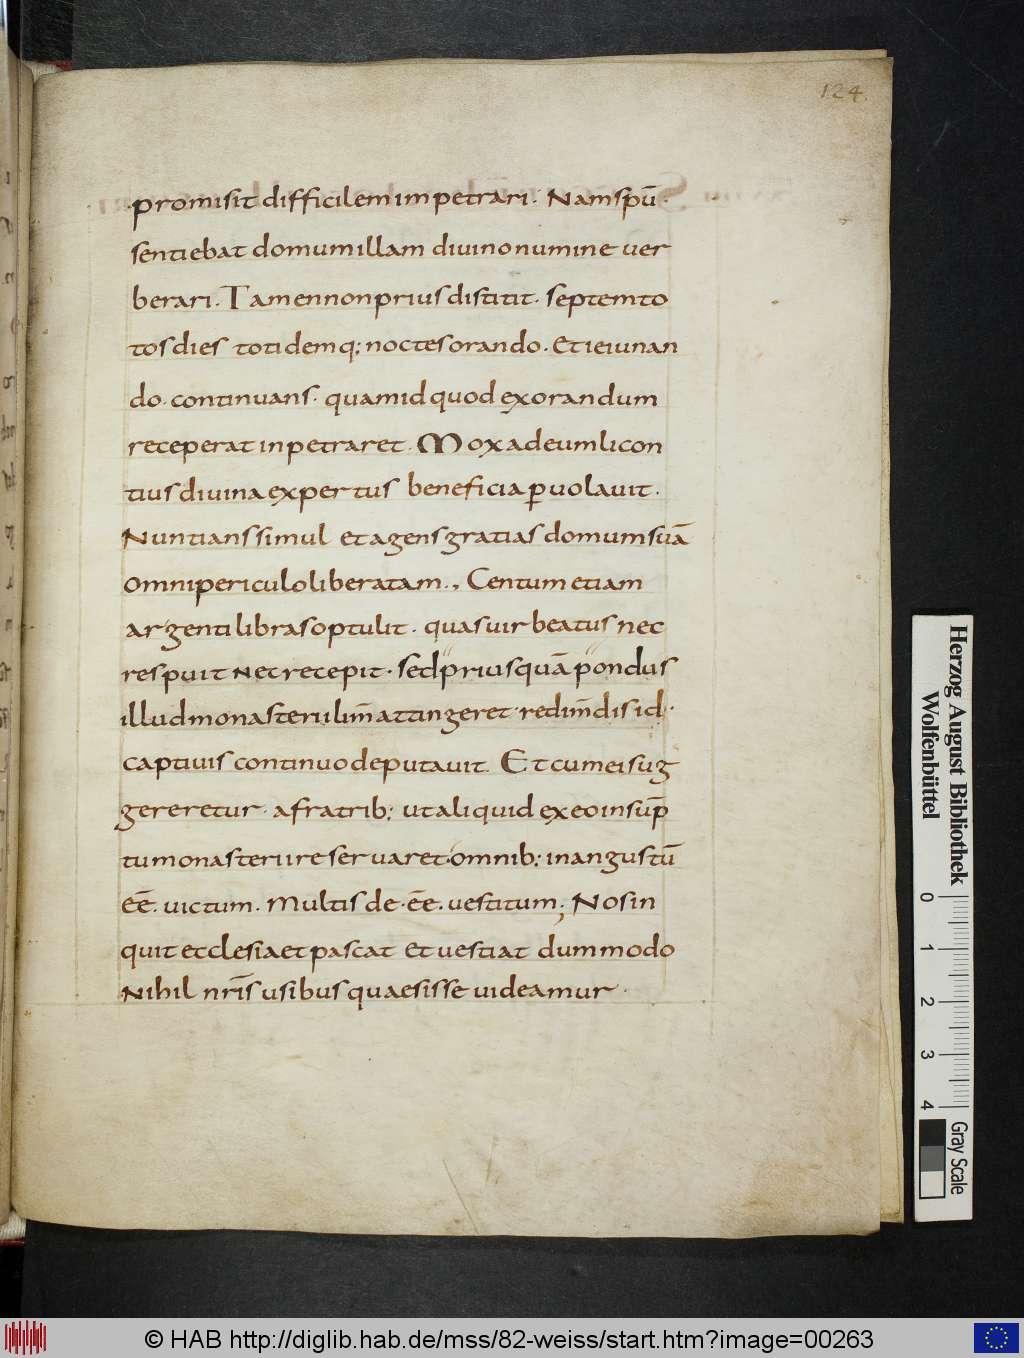 124.
promisit difficilem impetrari. Nam spū
sentiebat domum illam divino numine ver
berari. Tamen non prius distitit. septem to
tos dies totidemq; noctes orando. Et ieiunan
do. continuans. quam id quod exorandum
receperat inpetraret. Mox ad eum licon
tius divina expertus beneficia puolavit.
Nuntians simul et agens gratias domum suā
omni periculo liberatam., Centum etiam
argenti libras optulit. quas vir beatus nec
respuit nec recepit. sed priusquā pondus
illud monasterii lim̄ attingeret. redim̄dis id.
captivis continuo deputavit. Et cum ei sug
gereretur. a fratrib; ut aliquid ex eo in sūp
tu monasterii reservaret. omnib; in angustū
eē. victum. Multis de. eē. vestitum; Nos in
quit ecclesia et pascat et vestiat dummodo
Nihil nr̄is usibus quaesisse videamur.
Herzog August Bibliothek
Wolfenbüttel
0 1 2 3 4
Gray Scale
© HAB http://diglib.hab.de/mss/82-weiss/start.htm?image=00263